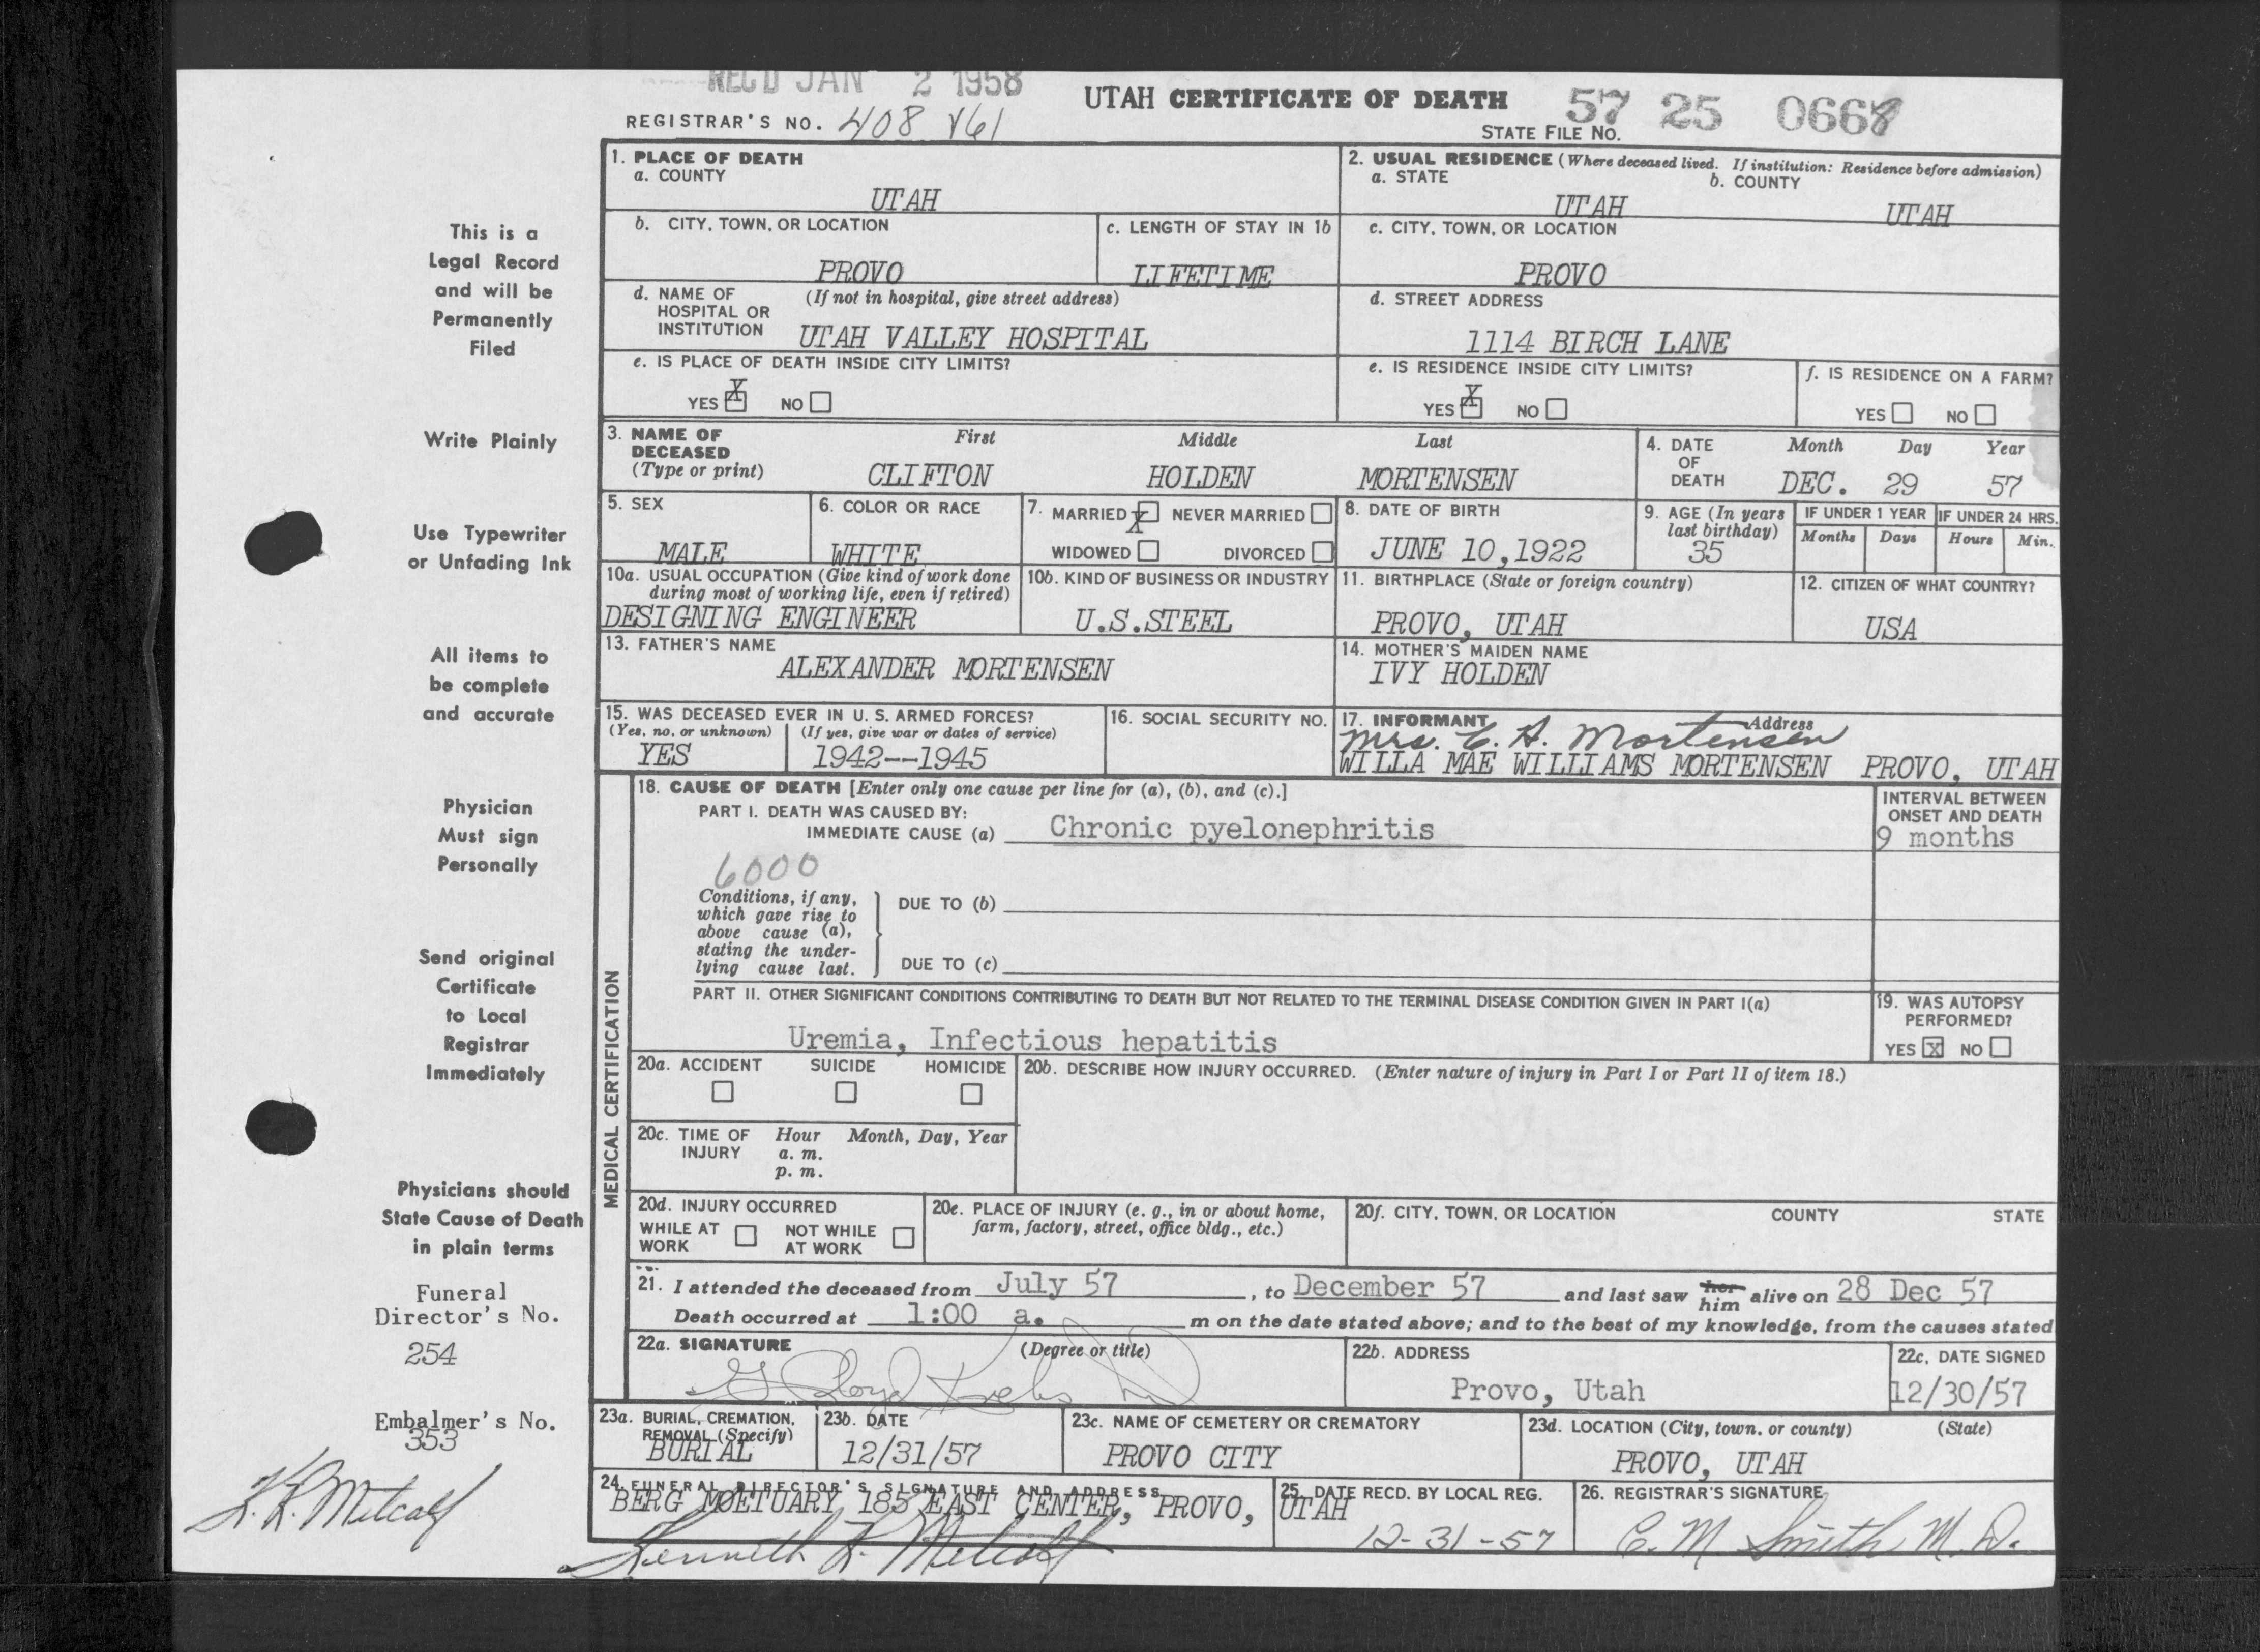 REC'D JAN 2 1958
UTAH CERTIFICATE OF DEATH
57 25 0668
REGISTRAR'S NO. 408 V61
STATE FILE NO.
1. PLACE OF DEATH
a. COUNTY
UTAH
2. USUAL RESIDENCE (Where deceased lived. If institution: Residence before admission)
a. STATE
b. COUNTY
UTAH
UTAH
b. CITY, TOWN, OR LOCATION
PROVO
c. LENGTH OF STAY IN 1b
LIFETIME
c. CITY, TOWN, OR LOCATION
PROVO
d. NAME OF HOSPITAL OR INSTITUTION
(If not in hospital, give street address)
UTAH VALLEY HOSPITAL
d. STREET ADDRESS
1114 BIRCH LANE
e. IS PLACE OF DEATH INSIDE CITY LIMITS?
YES X NO
e. IS RESIDENCE INSIDE CITY LIMITS?
YES X NO
f. IS RESIDENCE ON A FARM?
YES NO
3. NAME OF DECEASED
(Type or print)
First Middle Last
CLIFTON HOLDEN MORTENSEN
4. DATE OF DEATH
Month Day Year
DEC. 29 57
5. SEX
MALE
6. COLOR OR RACE
WHITE
7. MARRIED X NEVER MARRIED
WIDOWED DIVORCED
8. DATE OF BIRTH
JUNE 10,1922
9. AGE (In years last birthday)
35
IF UNDER 1 YEAR
Months Days
IF UNDER 24 HRS.
Hours Min.
10a. USUAL OCCUPATION (Give kind of work done during most of working life, even if retired)
DESIGNING ENGINEER
10b. KIND OF BUSINESS OR INDUSTRY
U.S.STEEL
11. BIRTHPLACE (State or foreign country)
PROVO, UTAH
12. CITIZEN OF WHAT COUNTRY?
USA
13. FATHER'S NAME
ALEXANDER MORTENSEN
14. MOTHER'S MAIDEN NAME
IVY HOLDEN
15. WAS DECEASED EVER IN U. S. ARMED FORCES?
(Yes, no, or unknown) (If yes, give war or dates of service)
YES 1942--1945
16. SOCIAL SECURITY NO.
17. INFORMANT Address
Mrs. C. H. Mortensen
WILLA MAE WILLIAMS MORTENSEN PROVO, UTAH
MEDICAL CERTIFICATION
18. CAUSE OF DEATH [Enter only one cause per line for (a), (b), and (c).]
PART I. DEATH WAS CAUSED BY:
IMMEDIATE CAUSE (a) Chronic pyelonephritis
INTERVAL BETWEEN ONSET AND DEATH
9 months
6000
Conditions, if any, which gave rise to above cause (a), stating the underlying cause last.
DUE TO (b)
DUE TO (c)
PART II. OTHER SIGNIFICANT CONDITIONS CONTRIBUTING TO DEATH BUT NOT RELATED TO THE TERMINAL DISEASE CONDITION GIVEN IN PART I(a)
Uremia, Infectious hepatitis
19. WAS AUTOPSY PERFORMED?
YES X NO
20a. ACCIDENT SUICIDE HOMICIDE
20b. DESCRIBE HOW INJURY OCCURRED. (Enter nature of injury in Part I or Part II of item 18.)
20c. TIME OF INJURY
Hour Month, Day, Year
a. m.
p. m.
20d. INJURY OCCURRED
WHILE AT WORK NOT WHILE AT WORK
20e. PLACE OF INJURY (e. g., in or about home, farm, factory, street, office bldg., etc.)
20f. CITY, TOWN, OR LOCATION COUNTY STATE
21. I attended the deceased from July 57, to December 57 and last saw her him alive on 28 Dec 57
Death occurred at 1:00 a. m on the date stated above; and to the best of my knowledge, from the causes stated
22a. SIGNATURE (Degree or title)
G Lloyd Krebs MD
22b. ADDRESS
Provo, Utah
22c. DATE SIGNED
12/30/57
23a. BURIAL, CREMATION, REMOVAL (Specify)
BURIAL
23b. DATE
12/31/57
23c. NAME OF CEMETERY OR CREMATORY
PROVO CITY
23d. LOCATION (City, town, or county) (State)
PROVO, UTAH
24. FUNERAL DIRECTOR'S SIGNATURE AND ADDRESS
BERG MOETUARY 185 EAST CENTER, PROVO, UTAH
Kenneth K. Metcalf
25. DATE RECD. BY LOCAL REG.
12-31-57
26. REGISTRAR'S SIGNATURE
C. M. Smith M. D.
This is a
Legal Record
and will be
Permanently
Filed
Write Plainly
Use Typewriter
or Unfading Ink
All items to
be complete
and accurate
Physician
Must sign
Personally
Send original
Certificate
to Local
Registrar
Immediately
Physicians should
State Cause of Death
in plain terms
Funeral
Director's No.
254
Embalmer's No.
353
K. K. Metcalf